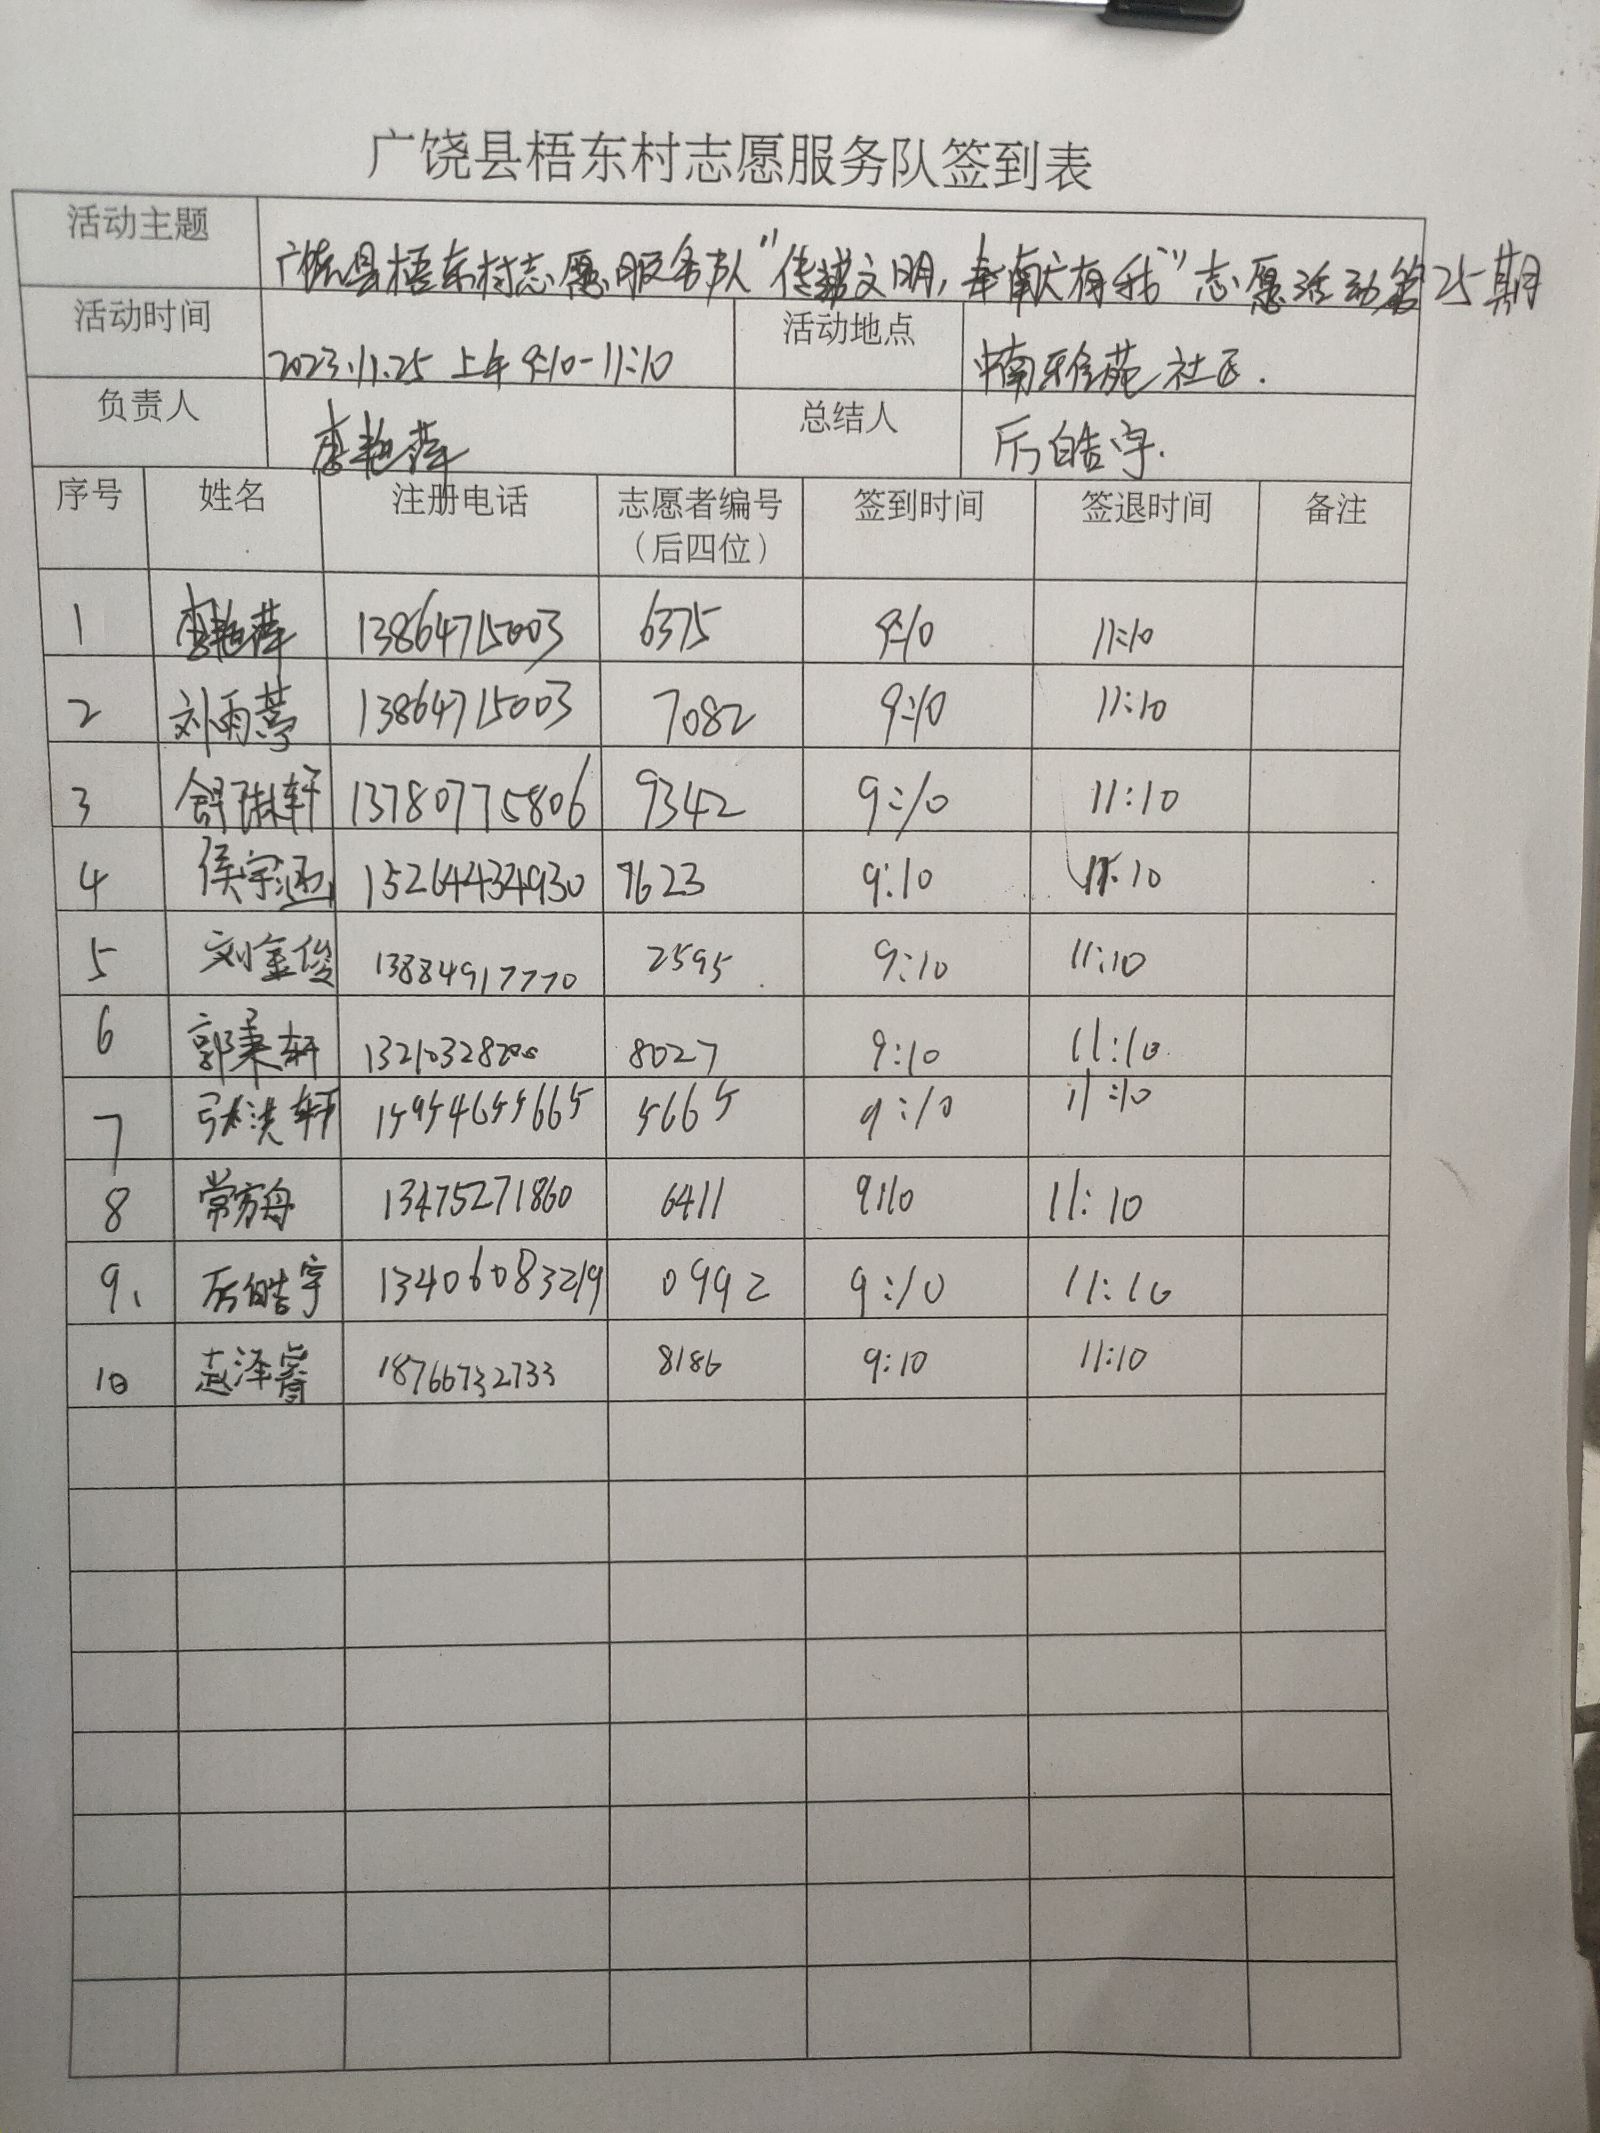 广饶县梧东村志愿服务队签到表
活动主题 广饶县梧东村志愿服务队"传播文明,奉献有我"志愿活动第25期
活动时间 2023.11.25 上午 9:10-11:10 活动地点 中南雅苑社区.
负责人 李艳萍 总结人 后皓宇.
序号 姓名 注册电话 志愿者编号 签到时间 签退时间 备注
(后四位)
1 李艳萍 13864715003 6375 9:10 11:10
2 刘雨葶 13864715003 7082 9:10 11:10
3 13780775806 9342 9:10 11:10
4 侯宇涵 15264434930 7623 9:10 11:10
5 刘金俊 13884917770 2595 9:10 11:10
6 郭秉轩 8027 9:10 11:10
7 张洪轩 15954655665 5665 9:10 11:10
8 常方舟 13475271860 6411 9:10 11:10
9. 后皓宇 13406083219 0992 9:10 11:10
10 泽睿 18766732733 8186 9:10 11:10